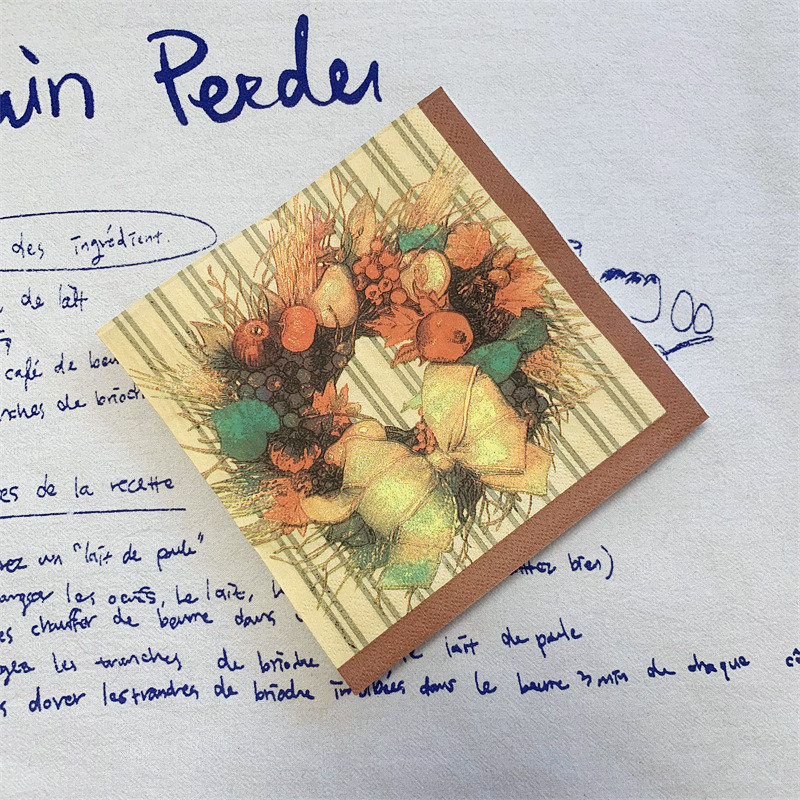 ain Perdu
des ingrédient.
de lait
café de beu
nches de brioch
es de la recette
rez un "lait de poule"
langer les oeufs, le lait,
es chauffer de beurre dans
gez les tranches de brioche lait de poule
s dorer les tranches de brioche imbibées dans le beurre 3 min de chaque cô
ttez bien)